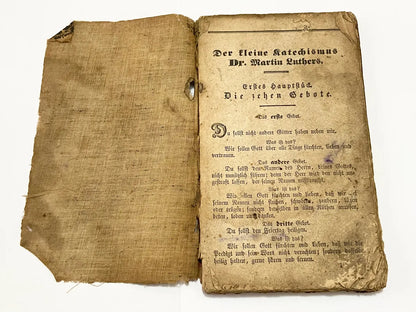 Der kleine Katechismus
Dr. Martin Luthers.
Erstes Hauptstück.
Die zehen Gebote.
Das erste Gebot.
Du sollst nicht andere Götter haben neben mir.
Was ist das?
Wir sollen Gott über alle Dinge fürchten, lieben und
vertrauen.
Das andere Gebot.
Du sollst den Namen des Herrn, deines Gottes,
nicht unnützlich führen; denn der Herr wird den nicht un-
gestraft lassen, der seinen Namen mißbraucht.
Was ist das?
Wir sollen Gott fürchten und lieben, daß wir bei
seinem Namen nicht fluchen, schwören, zaubern, lügen
oder trügen; sondern denselben in allen Nöthen anrufen,
beten, loben und danken.
Das dritte Gebot.
Du sollst den Feiertag heiligen.
Was ist das?
Wir sollen Gott fürchten und lieben, daß wir die
Predigt und sein Wort nicht verachten; sondern dasselbe
heilig halten, gerne hören und lernen.